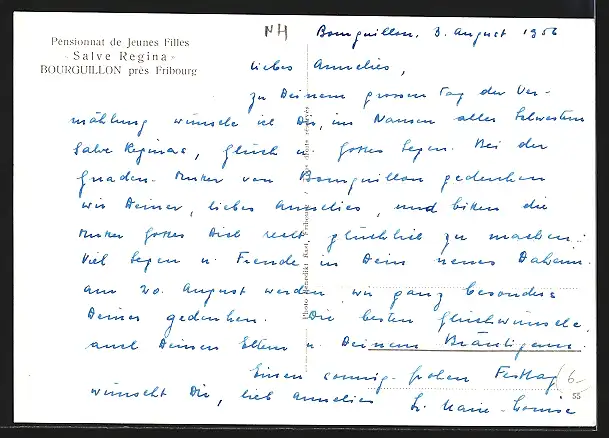 Pensionnat de Jeunes Filles
« Salve Regina »
BOURGUILLON près Fribourg
NH
Bourguillon, 3. August 1956
Liebes Annelies,
zu Deinem grossen Tag der Ver-
mählung wünsche ich Dir, im Namen aller Schwestern
Salve Reginas, Glück u. Gottes Segen. Bei der
Gnaden-Mutter von Bourguillon gedenken
wir Deiner, liebes Annelies, und bitten die
Mutter Gottes Dich recht glücklich zu machen.
Viel Segen u. Freude in Dein neues Daheim.
Am 20. August werden wir ganz besonders
Deiner gedenken. Die besten Glückwünsche,
auch Deinen Eltern u. Deinem Bräutigam.
Einen sonnig-frohen Festtag
wünscht Dir, lieb Annelies
Sr. Marie-Louise
6.-
55